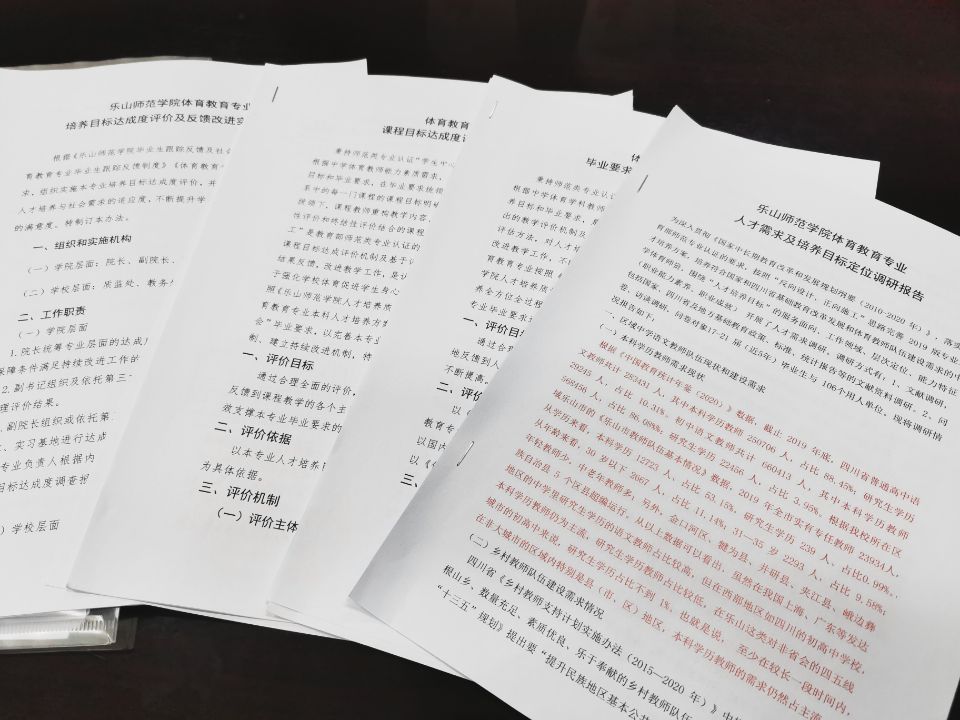 乐山师范学院体育教育专业
培养目标达成度评价及反馈改进实
根据《乐山师范学院毕业生跟踪反馈及社会
育教育专业毕业生跟踪反馈制度》《体育教育专
求，组织实施本专业培养目标达成度评价，并
人才培养与社会需求的适应度，不断提升学
的满意度。特制订本办法。
一、组织和实施机构
（一）学院层面：院长、副院长、
（二）学校层面：质监处、教务处
二、工作职责
（一）学院层面
1.院长统筹专业层面的达成
保障条件满足持续改进工作的
2.副书记组织及依托第三
理评价结果。
副院长组织或依托第
、实习基地进行达成
专业负责人根据内
目标达成度调查报
）学校层面
体育教育
课程目标达成度评
秉持师范类专业认证“学生中心
根据中学体育教师能力素质需求，
目标和毕业要求，在毕业要求统领
系中的每一门课程的课程目标明
统领下，课程教师重构教学内容，
性评价和终结性评价结合的课程
工”是教育部师范类专业认证的
课程目标达成评价机制及基于
结果反馈，改进教学工作，是认
于强化学校体育促进学生身心
照《乐山师范学院人才培养质
育教育专业本科人才培养方案
会”毕业要求，以完善本专业
、建立持续改进机制，特
一、评价目标
通过合理全面的评价，
反馈到课程教学的各个主
效支撑本专业毕业要求的
二、评价依据
以本专业人才培养
为具体依据。
三、评价机制
（一）评价主体
体
毕业要求
秉持师范类专业认
根据中学体育学科教师
养目标和毕业要求，是
出的教学评价机制及
评估方法，对人才培
改进教学工作，不
育教育专业按照
学院人才培养质
养全方位全过程
专业毕业要求
一、评价目
地反馈到人
不断提高。
二、评价
以《
以国内
以《
三、
乐山师范学院体育教育专业
人才需求及培养目标定位调研报告
为深入贯彻《国家中长期教育改革和发展规划纲要（2010-2020年）》，落实
育部师范专业认证的要求，按照“反向设计、正向施工”思路完善2019版专业人
才培养方案，培养符合国家和四川省基础教育改革发展和体育教师队伍建设需求的中
学体育师资，围绕“人才培养目标”的服务面向、工作领域、层次定位、能力特征
（职业能力素养、职业成就）开展了人才需求调研，调研方式有：1、文献调研，
包括国家、四川省及地方基础教育政策、标准、统计报告等的文献资料调研。2、问
卷、访谈调研，问卷对象17-21届（近5年）毕业生与106个用人单位，现将调研情
况报告如下。
一、区域中学语文教师队伍现状和建设需求
（一）本科学历教师需求现状
根据《中国教育统计年鉴（2020）》数据，截止2019年底，四川省普通高中语
文教师共计283451人，其中本科学历教师250706人，占比88.45%，研究生学历
29245人，占比10.31%。初中语文教师共计660413人，其中本科学历教师
568456人，占比86.08%；研究生学历22456人，占比3.95%。根据我校所在区
域乐山市的《乐山市教师队伍基本情况》数据，2019年全市实有专任教师23934人，
从学历来看，本科学历12723人，占比53.15%，研究生学历239人，占比0.99%。
从年龄来看，30岁以下2067人，占比11.14%，31—35岁2293人，占比9.58%；
年轻教师少，中老年教师多。另外，金口河区、犍为县、井研县、夹江县、峨边彝
族自治县5个区县超编运行。从以上数据可以看出，虽然在我国上海、广东等发达
地区的中学里研究生学历的语文教师占比较高，但在西部地区如四川的初高中学校，
本科学历教师仍为主流，研究生学历教师占比较低，在乐山这类对非省会的四五线
城市的初高中来说，研究生学历占比不到1%。也就是说，至少在较长一段时间内，
在非大城市的区域内特别是县（市、区）地区，本科学历教师的需求仍然占主流
（二）乡村教师队伍建设需求情况
四川省《乡村教师支持计划实施办法（2015—2020年）》中
根山乡、数量充足、素质优良、乐于奉献的乡村教师队伍
“十三五”规划》提出要“提升民族地区基本公共